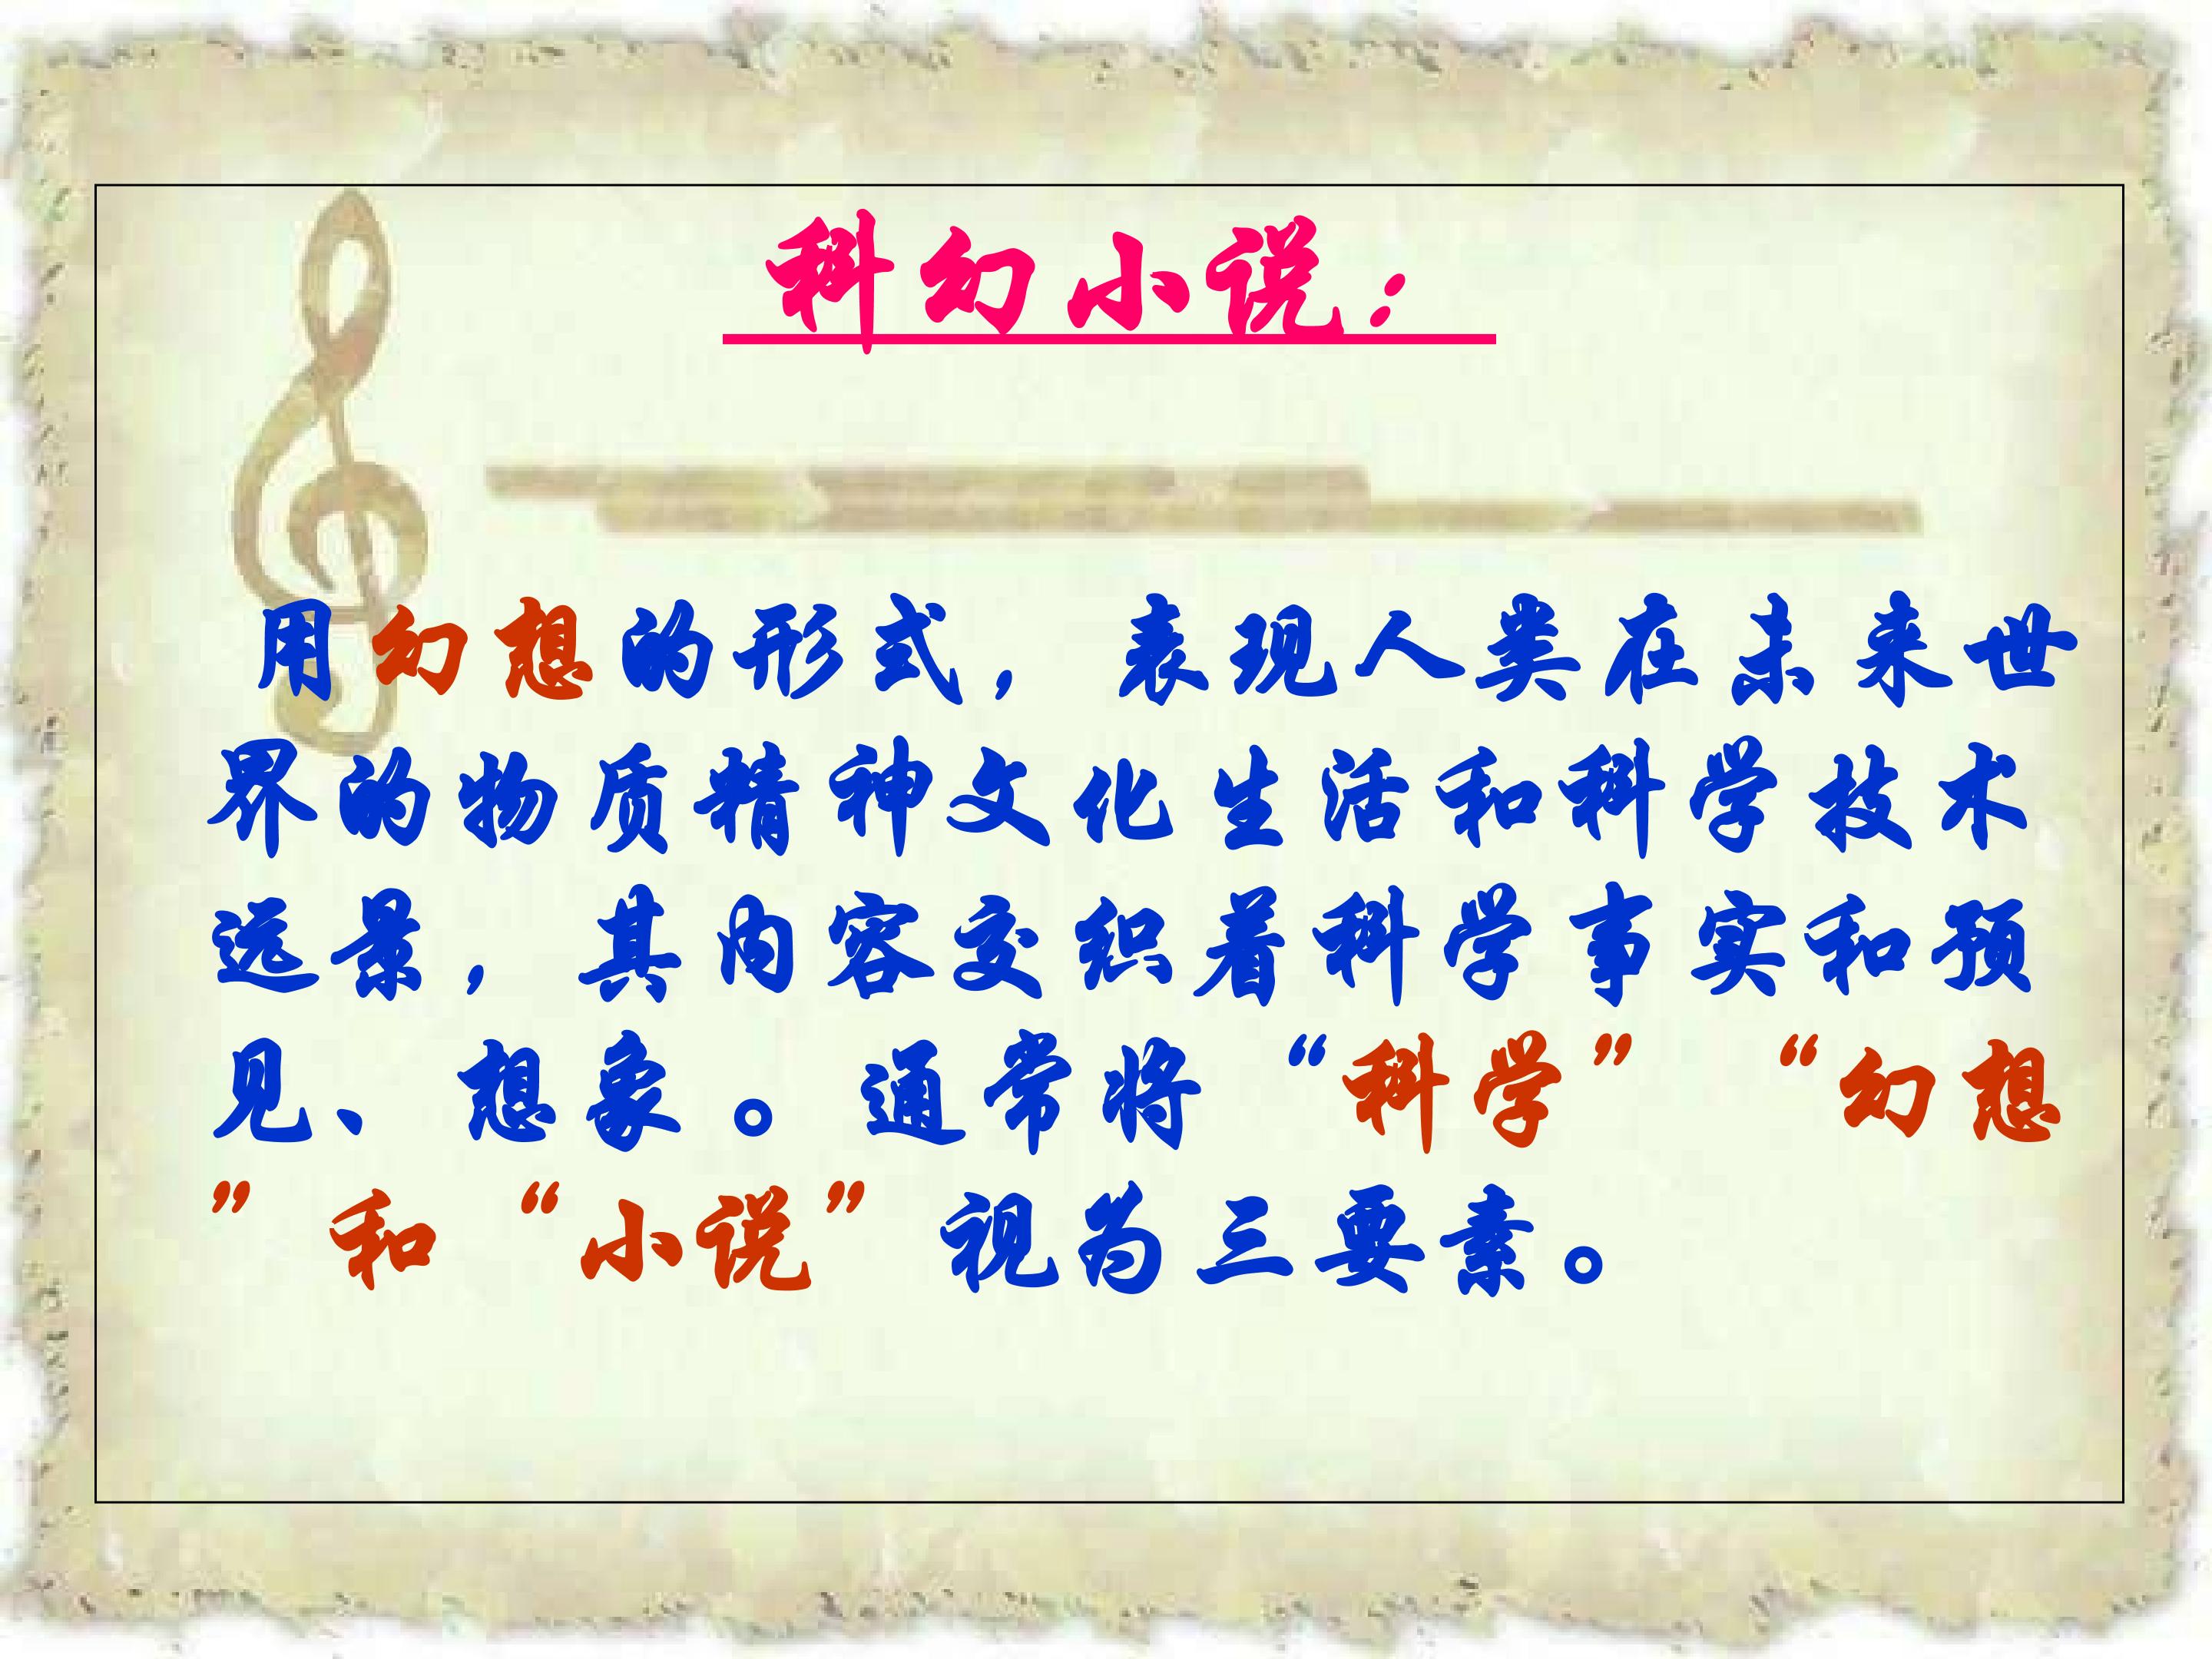 科幻小说：
用幻想的形式，表现人类在未来世
界的物质精神文化生活和科学技术
远景，其内容交织着科学事实和预
见、想象。通常将“科学”“幻想
”和“小说”视为三要素。